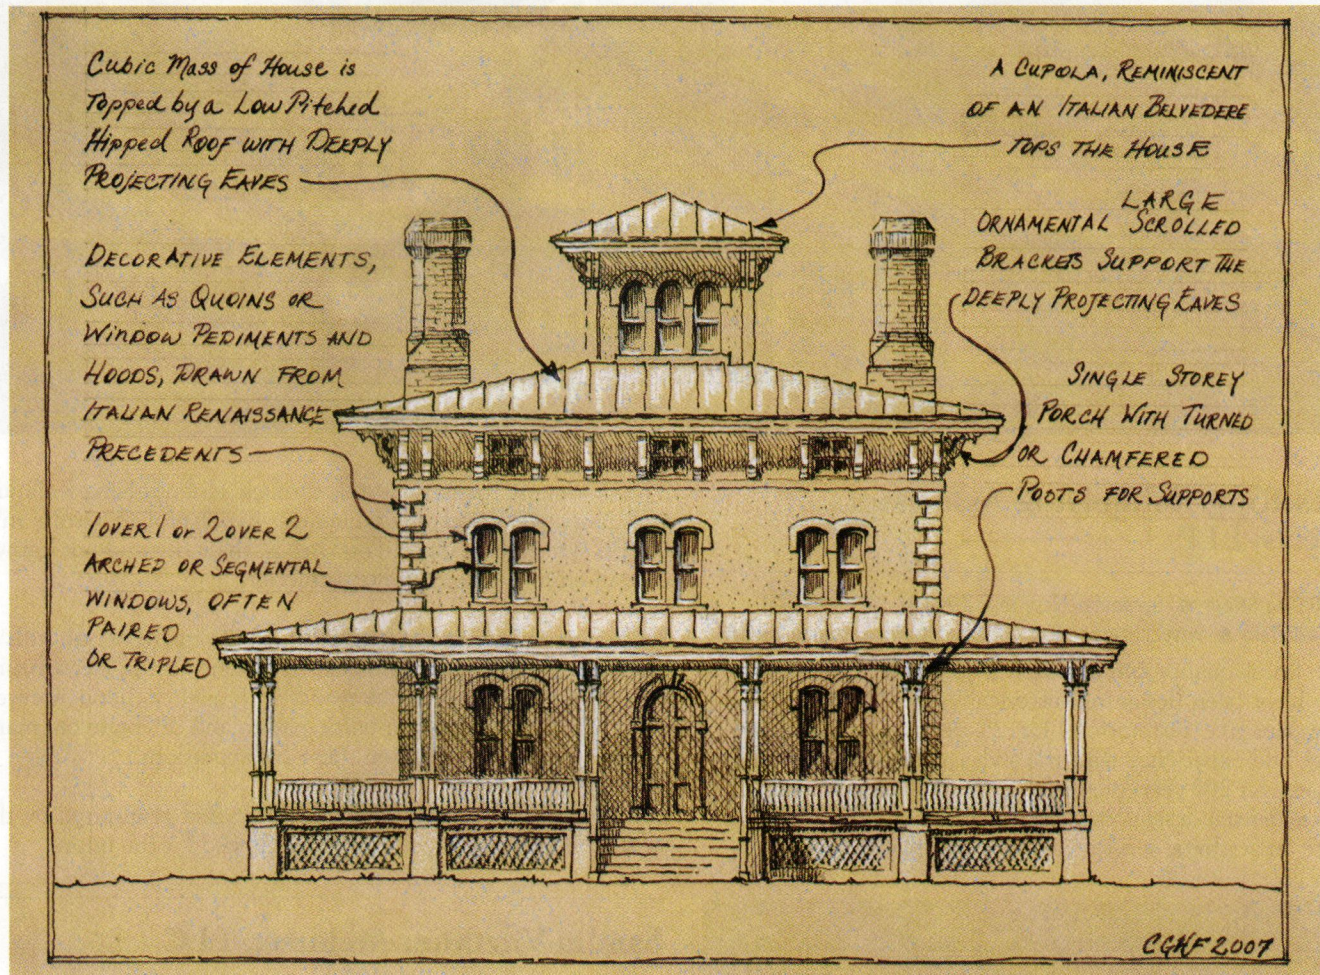 Cubic Mass of House is
Topped by a Low Pitched
Hipped Roof with Deeply
Projecting Eaves
Decorative Elements,
Such as Quoins or
Window Pediments and
Hoods, Drawn from
Italian Renaissance
Precedents
1 over 1 or 2 over 2
Arched or Segmental
Windows, often
Paired
or Tripled
A Cupola, Reminiscent
of an Italian Belvedere
Tops the House
Large
Ornamental Scrolled
Brackets Support the
Deeply Projecting Eaves
Single Storey
Porch With Turned
or Chamfered
Posts for Supports
CGHF 2007